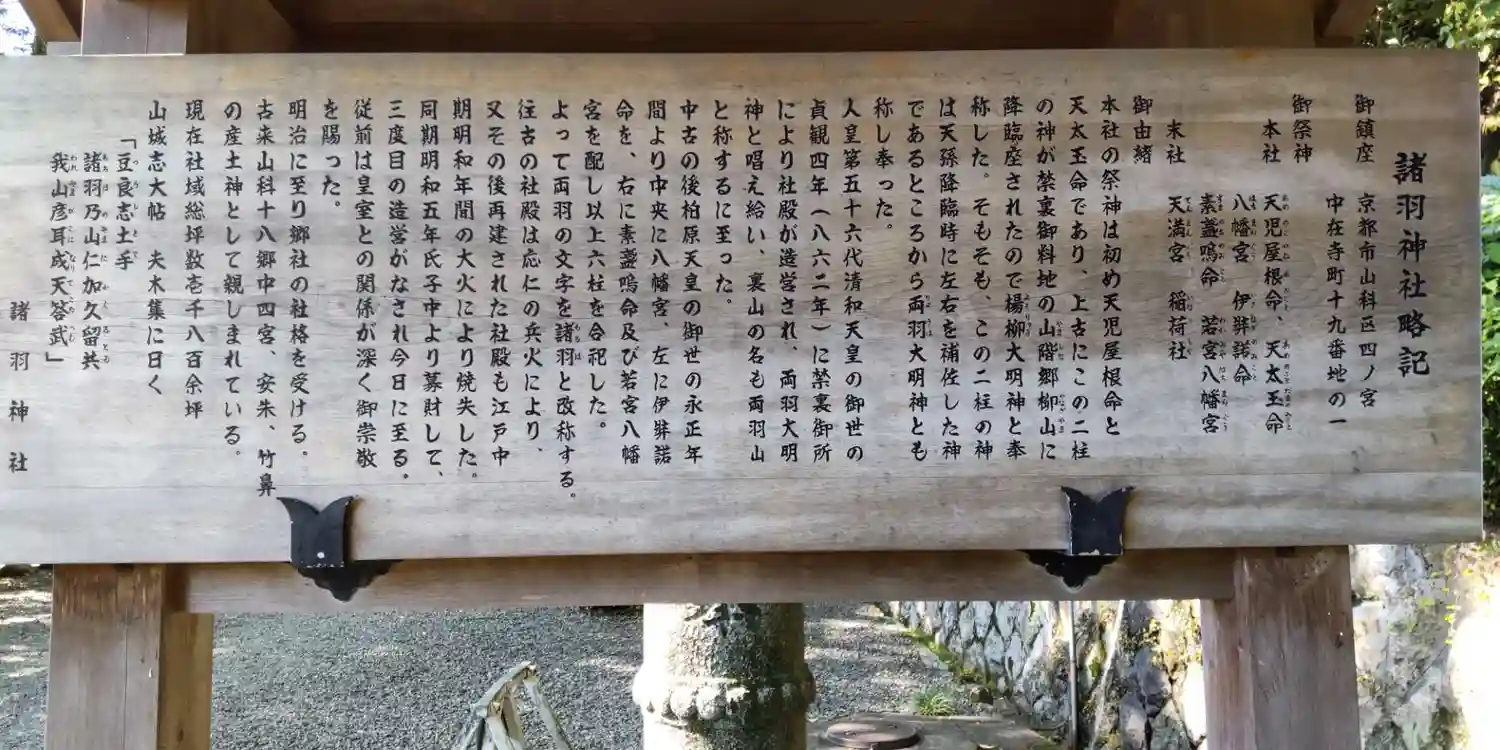 諸羽神社略記
御鎮座 京都市山科区四ノ宮
中在寺町十九番地の一
御祭神
本社 天児屋根命、天太玉命
八幡宮 伊弉諾命
素盞嗚命 若宮八幡宮
末社 天満宮 稲荷社
御由緒
本社の祭神は初め天児屋根命と
天太玉命であり、上古にこの二柱
の神が禁裏御料地の山階郷柳山に
降臨座されたので楊柳大明神と奉
称した。そもそも、この二柱の神
は天孫降臨時に左右を補佐した神
であるところから両羽大明神とも
称し奉った。
人皇第五十六代清和天皇の御世の
貞観四年(八六二年)に禁裏御所
により社殿が造営され、両羽大明
神と唱え給い、裏山の名も両羽山
と称するに至った。
中古の後柏原天皇の御世の永正年
間より中央に八幡宮、左に伊弉諾
命を、右に素盞嗚命及び若宮八幡
宮を配し以上六柱を合祀した。
よって両羽の文字を諸羽と改称する。
往古の社殿は応仁の兵火により、
又その後再建された社殿も江戸中
期明和年間の大火により焼失した。
同期明和五年氏子中より募財して、
三度目の造営がなされ今日に至る。
従前は皇室との関係が深く御崇敬
を賜った。
明治に至り郷社の社格を受ける。
古来山科十八郷中四宮、安朱、竹鼻
の産土神として親しまれている。
現在社域総坪数壱千八百余坪
山城志大帖 夫木集に曰く
「豆良志土手
諸羽乃山仁加久留共
我山彦耳成天答武」
諸羽神社